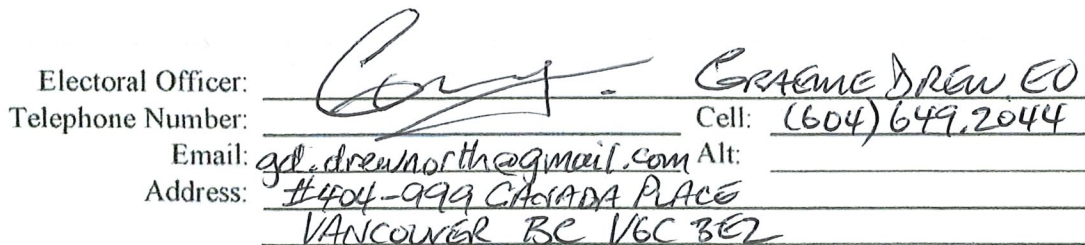 Electoral Officer: GRAEME DREW EO
Telephone Number: Cell: (604) 649.2044
Email: gd.drewnorth@gmail.com Alt:
Address: #404-999 CANADA PLACE
VANCOUVER BC V6C 3E2